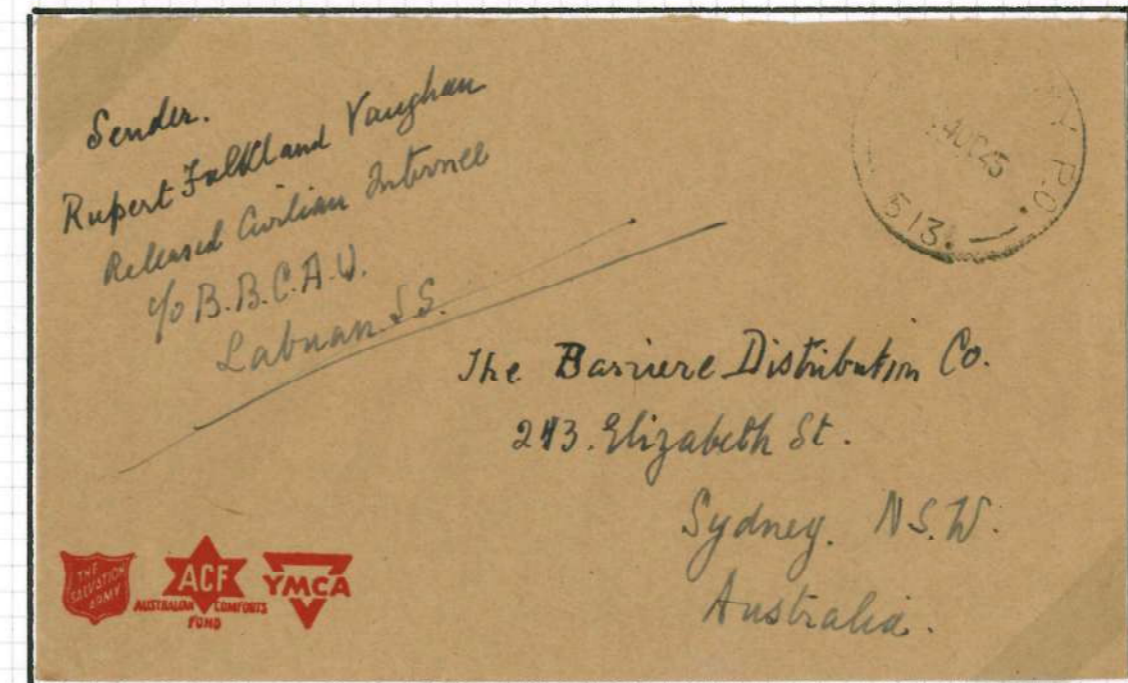 Sender.
Rupert Falkland Vaughan
Released Civilian Internee
c/o B.B.C.A.U.
Labuan. S.S.
AUG 45
P.O.
513.
The Barriere Distribution Co.
243. Elizabeth St.
Sydney. N.S.W.
Australia.
THE
SALVATION
ARMY
ACF
AUSTRALIAN COMFORTS
FUND
YMCA